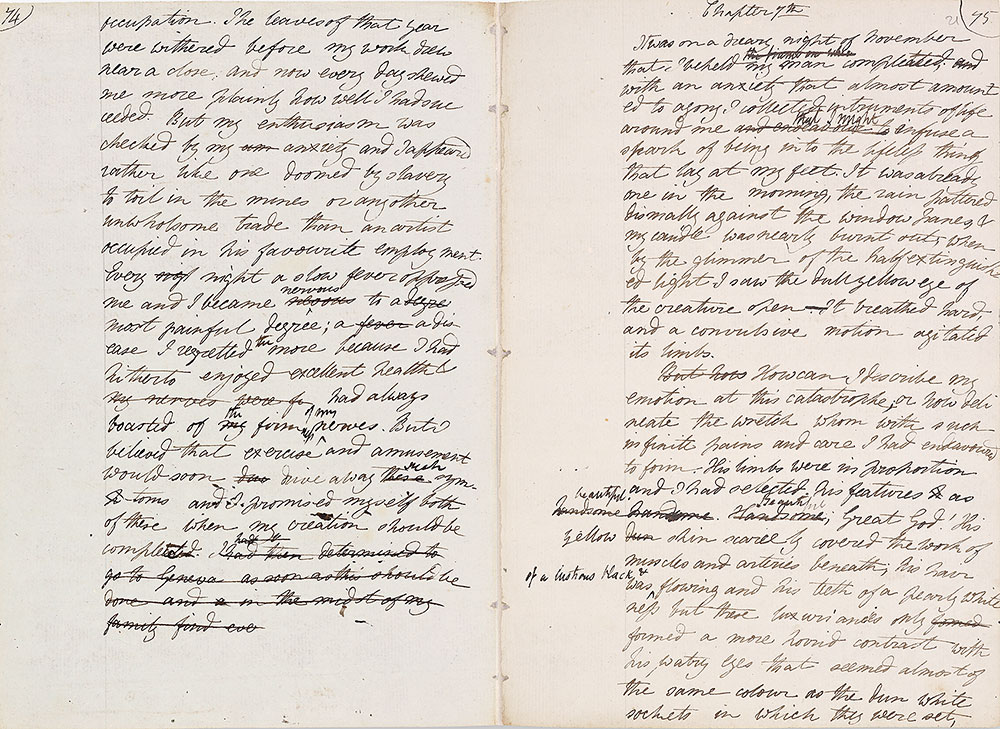 74)
occupation. The leaves of that year
were withered before my work drew
near a close. and now every day shewed
me more plainly how well I had suc
ceeded. But my enthusiasm was
checked by my anxiety and I appeared
rather like one doomed by slavery
to toil in the mines or any other
unwholsome trade than an artist
occupied in his favourite employment.
Every night a slow fever oppressed
nervous
me and I became to a degree
most painful degree; a fever a dis
the
ease I regretted more because I had
hitherto enjoyed excellent health &
my nerves were had always
the of my
boasted of my firm nerves. But I
believed that exercise and amusement
such
would soon drive away these sym-
toms and I promised myself both
of these when my creation should be
had
completed. I had then determined to
go to Geneva as soon as this should be
done and in the midst of my
family find
Chapter 7th
(75
It was on a dreary night of November
that I beheld my man compleated; and
with an anxiety that almost amount
ed to agony, I collected instruments of life
that I might
around me and infuse a
spark of being into the lifeless thing
that lay at my feet. It was already
one in the morning, the rain pattered
dismally against the window panes, &
my candle was nearly burnt out, when
by the glimmer of the half extinguish
ed light I saw the dull yellow eye of
the creature open – It breathed hard,
and a convulsive motion agitated
its limbs.
But how How can I describe my
emotion at this catastrophe, or how deli
neate the wretch whom with such
infinite pains and care I had endeavoured
to form. His limbs were in proportion
and I had selected his features as
beautiful
handsome handsome. Handsome; Great God! His
Beautiful
yellow dun skin scarcely covered the work of
muscles and arteries beneath; his hair
of a lustrous black &
was flowing and his teeth of a pearly white
ness but these luxuriances only formed
formed a more horrid contrast with
his watry eyes that seemed almost of
the same colour as the dun white
sockets in which they were set,